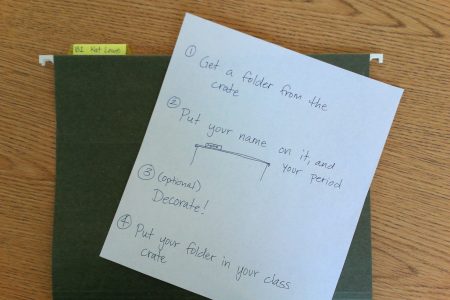 B1 Kat Lowe
① Get a folder from the
crate
② Put your name on it, and
your period
③ (optional)
Decorate!
④ Put your folder in your class
crate